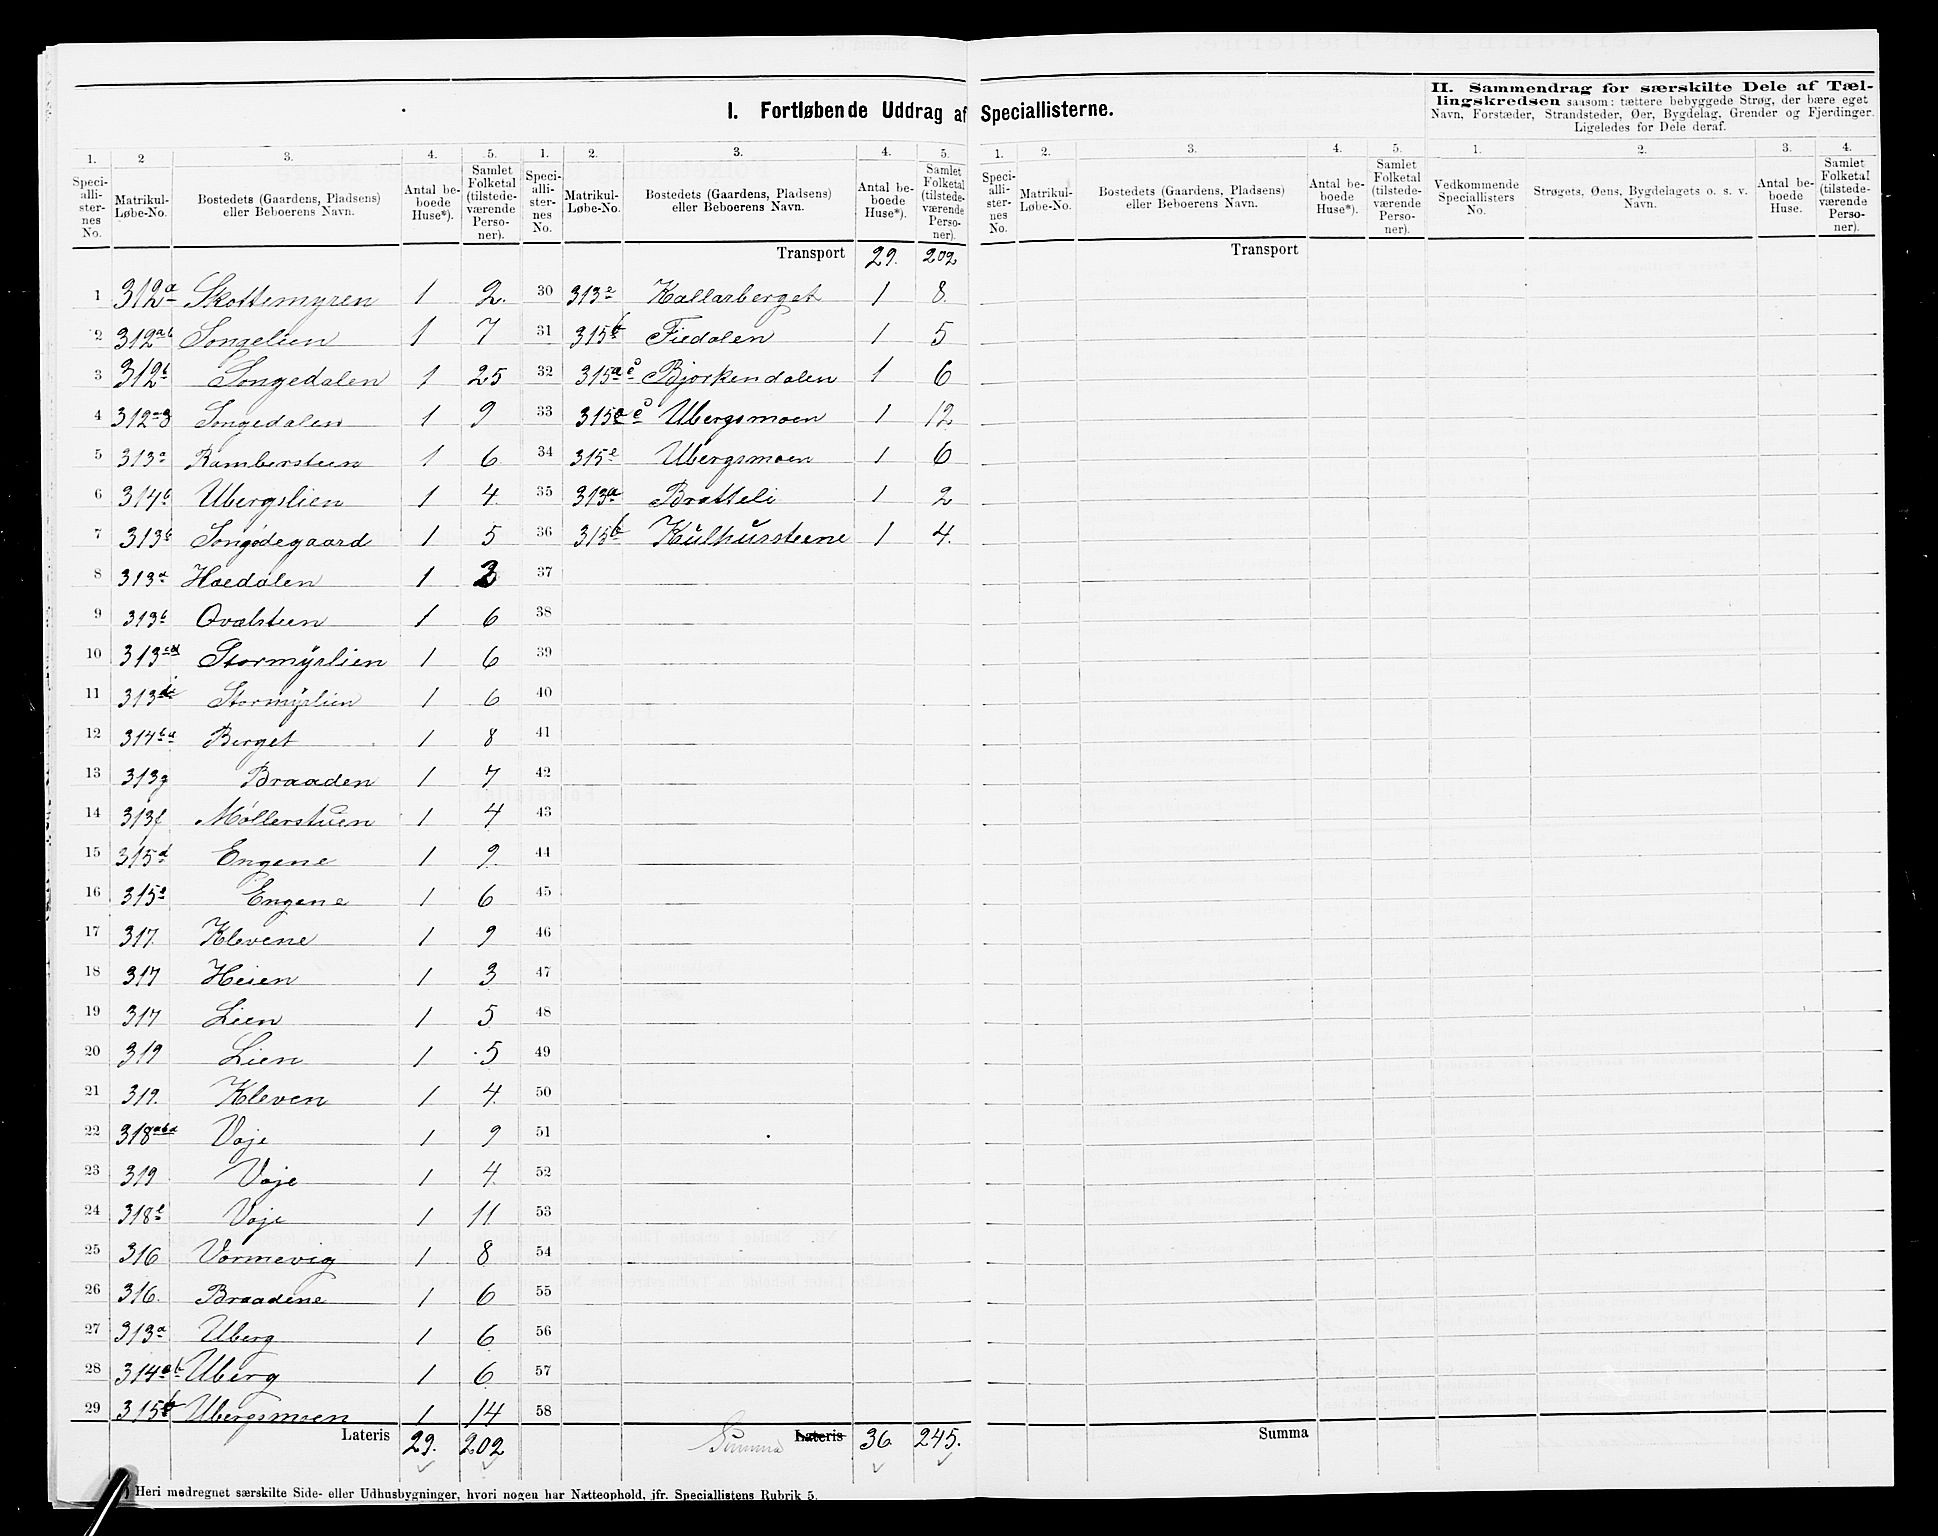 I. Fortløbende Uddrag af Speciallisterne.
II. Sammendrag for særskilte Dele af Tæl-
lingskredsen saasom: tættere bebyggede Strøg, der bære eget
Navn, Forstæder, Strandsteder, Øer, Bygdelag, Grender og Fjerdinger.
Ligeledes for Dele deraf.
1. 2 3. 4. 5. 1. 2. 3. 4. 5. 1. 2. 3. 4. 5. 1. 2. 3. 4.
Speci-alli-ster-nes No. Matrikul-Løbe-No. Bostedets (Gaardens, Pladsens) eller Beboerens Navn. Antal be-boede Huse*). Samlet Folketal (tilstede-værende Perso-ner).
Speci-alli-ster-nes No. Matrikul-Løbe-No. Bostedets (Gaardens, Pladsens) eller Beboerens Navn. Antal be-boede Huse*). Samlet Folketal (tilstede-værende Perso-ner).
Speci-alli-ster-nes No. Matrikul-Løbe-No. Bostedets (Gaardens, Pladsens) eller Beboerens Navn. Antal be-boede Huse*). Samlet Folketal (tilstede-værende Perso-ner).
Vedkommende Speciallisters No. Strøgets, Øens, Bygdelagets o. s. v. Navn. Antal be-boede Huse. Samlet Folketal (tilstede-værende Perso-ner).
Transport 29. 202 Transport
1 312a Skottemyren 1 2. 30 313e Kallarberget 1 8.
2 312ab Songelien 1 7 31 315b Fiedalen 1 5
3 312b Songedalen 1 25 32 315ac Bjorkendalen 1 6
4 312 Songedalen 1 9 33 315ac Ubergsmoen 1 12
5 313a Rambersteen 1 6 34 315e Ubergsmoen 1 6
6 314b Ubergslien 1 4. 35 313a Bratteli 1 2
7 313b Songødegaard 1 5 36 315b Kulhussteene 1 4.
8 313a Haedalen 1 3 37
9 313b Qvalsteen 1 6 38
10 313cd Stormyrlien 1 6 39
11 313 Stormyrlien 1 6 40
12 314ba Berget 1 8 41
13 313g Braaden 1 7 42
14 313f Møllerstuen 1 4 43
15 315d Engene 1 9. 44
16 315e Engene 1 6 45
17 317. Klevene 1 9 46
18 317 Heien 1 3 47
19 317 Lien 1 5 48
20 319 Lien 1 5 49
21 319. Kleven 1 4. 50
22 318aba Voje 1 9 51
23 319 Voje 1 4. 52
24 318e Voje 1 11 53
25 316 Vormevig 1 8 54
26 316. Braadene 1 6 55
27 313a Uberg 1 6 56
28 314ab Uberg 1 6. 57
29 315b Ubergsmoen 1 14 58
Lateris 29. 202 Summa Lateris 36 245. Summa
*) Heri medregnet særskilte Side- eller Udhusbygninger, hvori nogen har Natteophold, jfr. Speciallistens Rubrik 5.